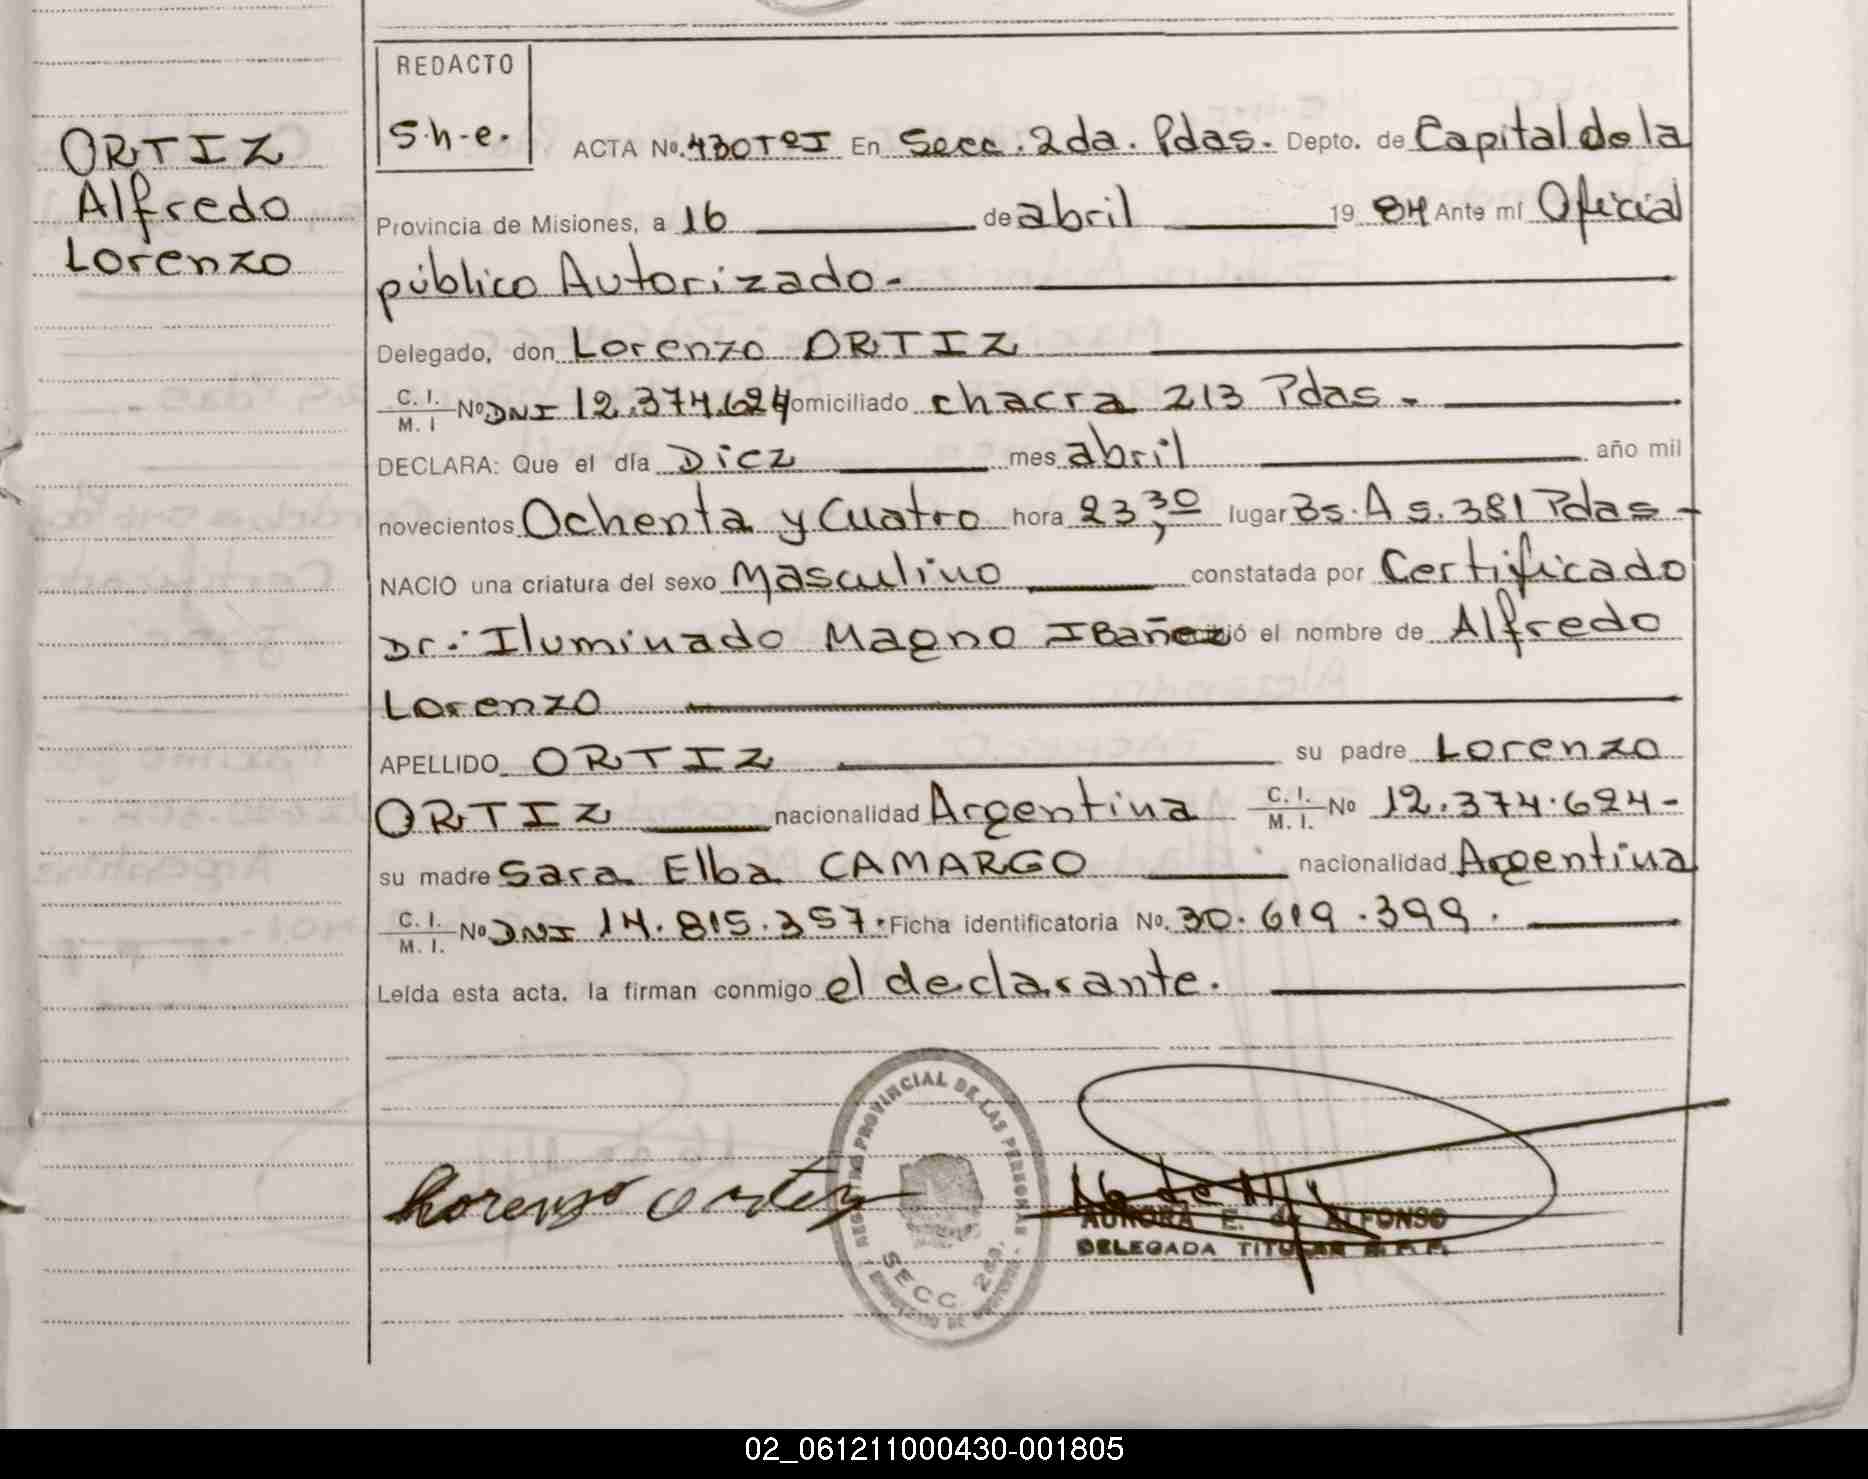 ORTIZ
Alfredo
Lorenzo
REDACTO
S.h-e.
ACTA No. 430 TºI En Secc. 2da. Pdas. Depto. de Capital de la
Provincia de Misiones, a 16 de abril 19 84 Ante mí Oficial
público Autorizado-
Delegado, don Lorenzo ORTIZ
C. I. M. I No DNI 12.374.624 omiciliado chacra 213 Pdas-
DECLARA: Que el día Diez mes abril año mil
novecientos Ochenta y Cuatro hora 23,30 lugar Bs. As. 381 Pdas-
NACIO una criatura del sexo Masculino constatada por Certificado
Dr: Iluminado Magno IBañez ió el nombre de Alfredo
Lorenzo
APELLIDO ORTIZ su padre Lorenzo
ORTIZ nacionalidad Argentina C. I. M. I. No 12.374.624-
su madre Sara Elba CAMARGO nacionalidad Argentina
C. I. M. I. No DNI 14.815.357. Ficha identificatoria No. 30.619.399.
Leída esta acta, la firman conmigo el declarante.
REGISTRO PROVINCIAL DE LAS PERSONAS
SECC. 2da.
Lorenzo Ortiz
AURORA E. de ALFONSO
DELEGADA TITULAR R.P.P.
02_061211000430-001805